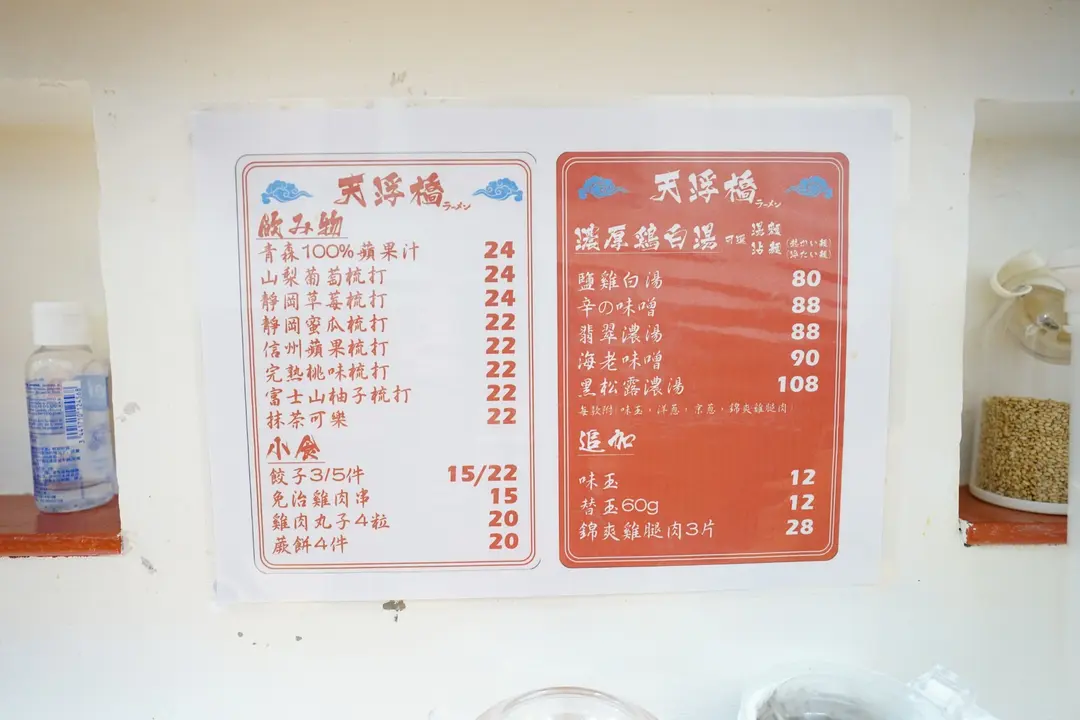 天浮橋
ラーメン
飲み物
青森100%蘋果汁 24
山梨葡萄梳打 24
靜岡草莓梳打 24
靜岡蜜瓜梳打 22
信州蘋果梳打 22
完熟桃味梳打 22
富士山柚子梳打 22
抹茶可樂 22
小食
餃子3/5件 15/22
免治雞肉串 15
雞肉丸子4粒 20
蕨餅4件 20
天浮橋
ラーメン
濃厚鶏白湯 可選 湯麵 沾麵
(熱かい麺)
(冷たい麺)
鹽雞白湯 80
辛の味噌 88
翡翠濃湯 88
海老味噌 90
黑松露濃湯 108
每款附(味玉,洋蔥,京蔥,錦爽雞腿肉)
追加
味玉 12
替玉60g 12
錦爽雞腿肉3片 28